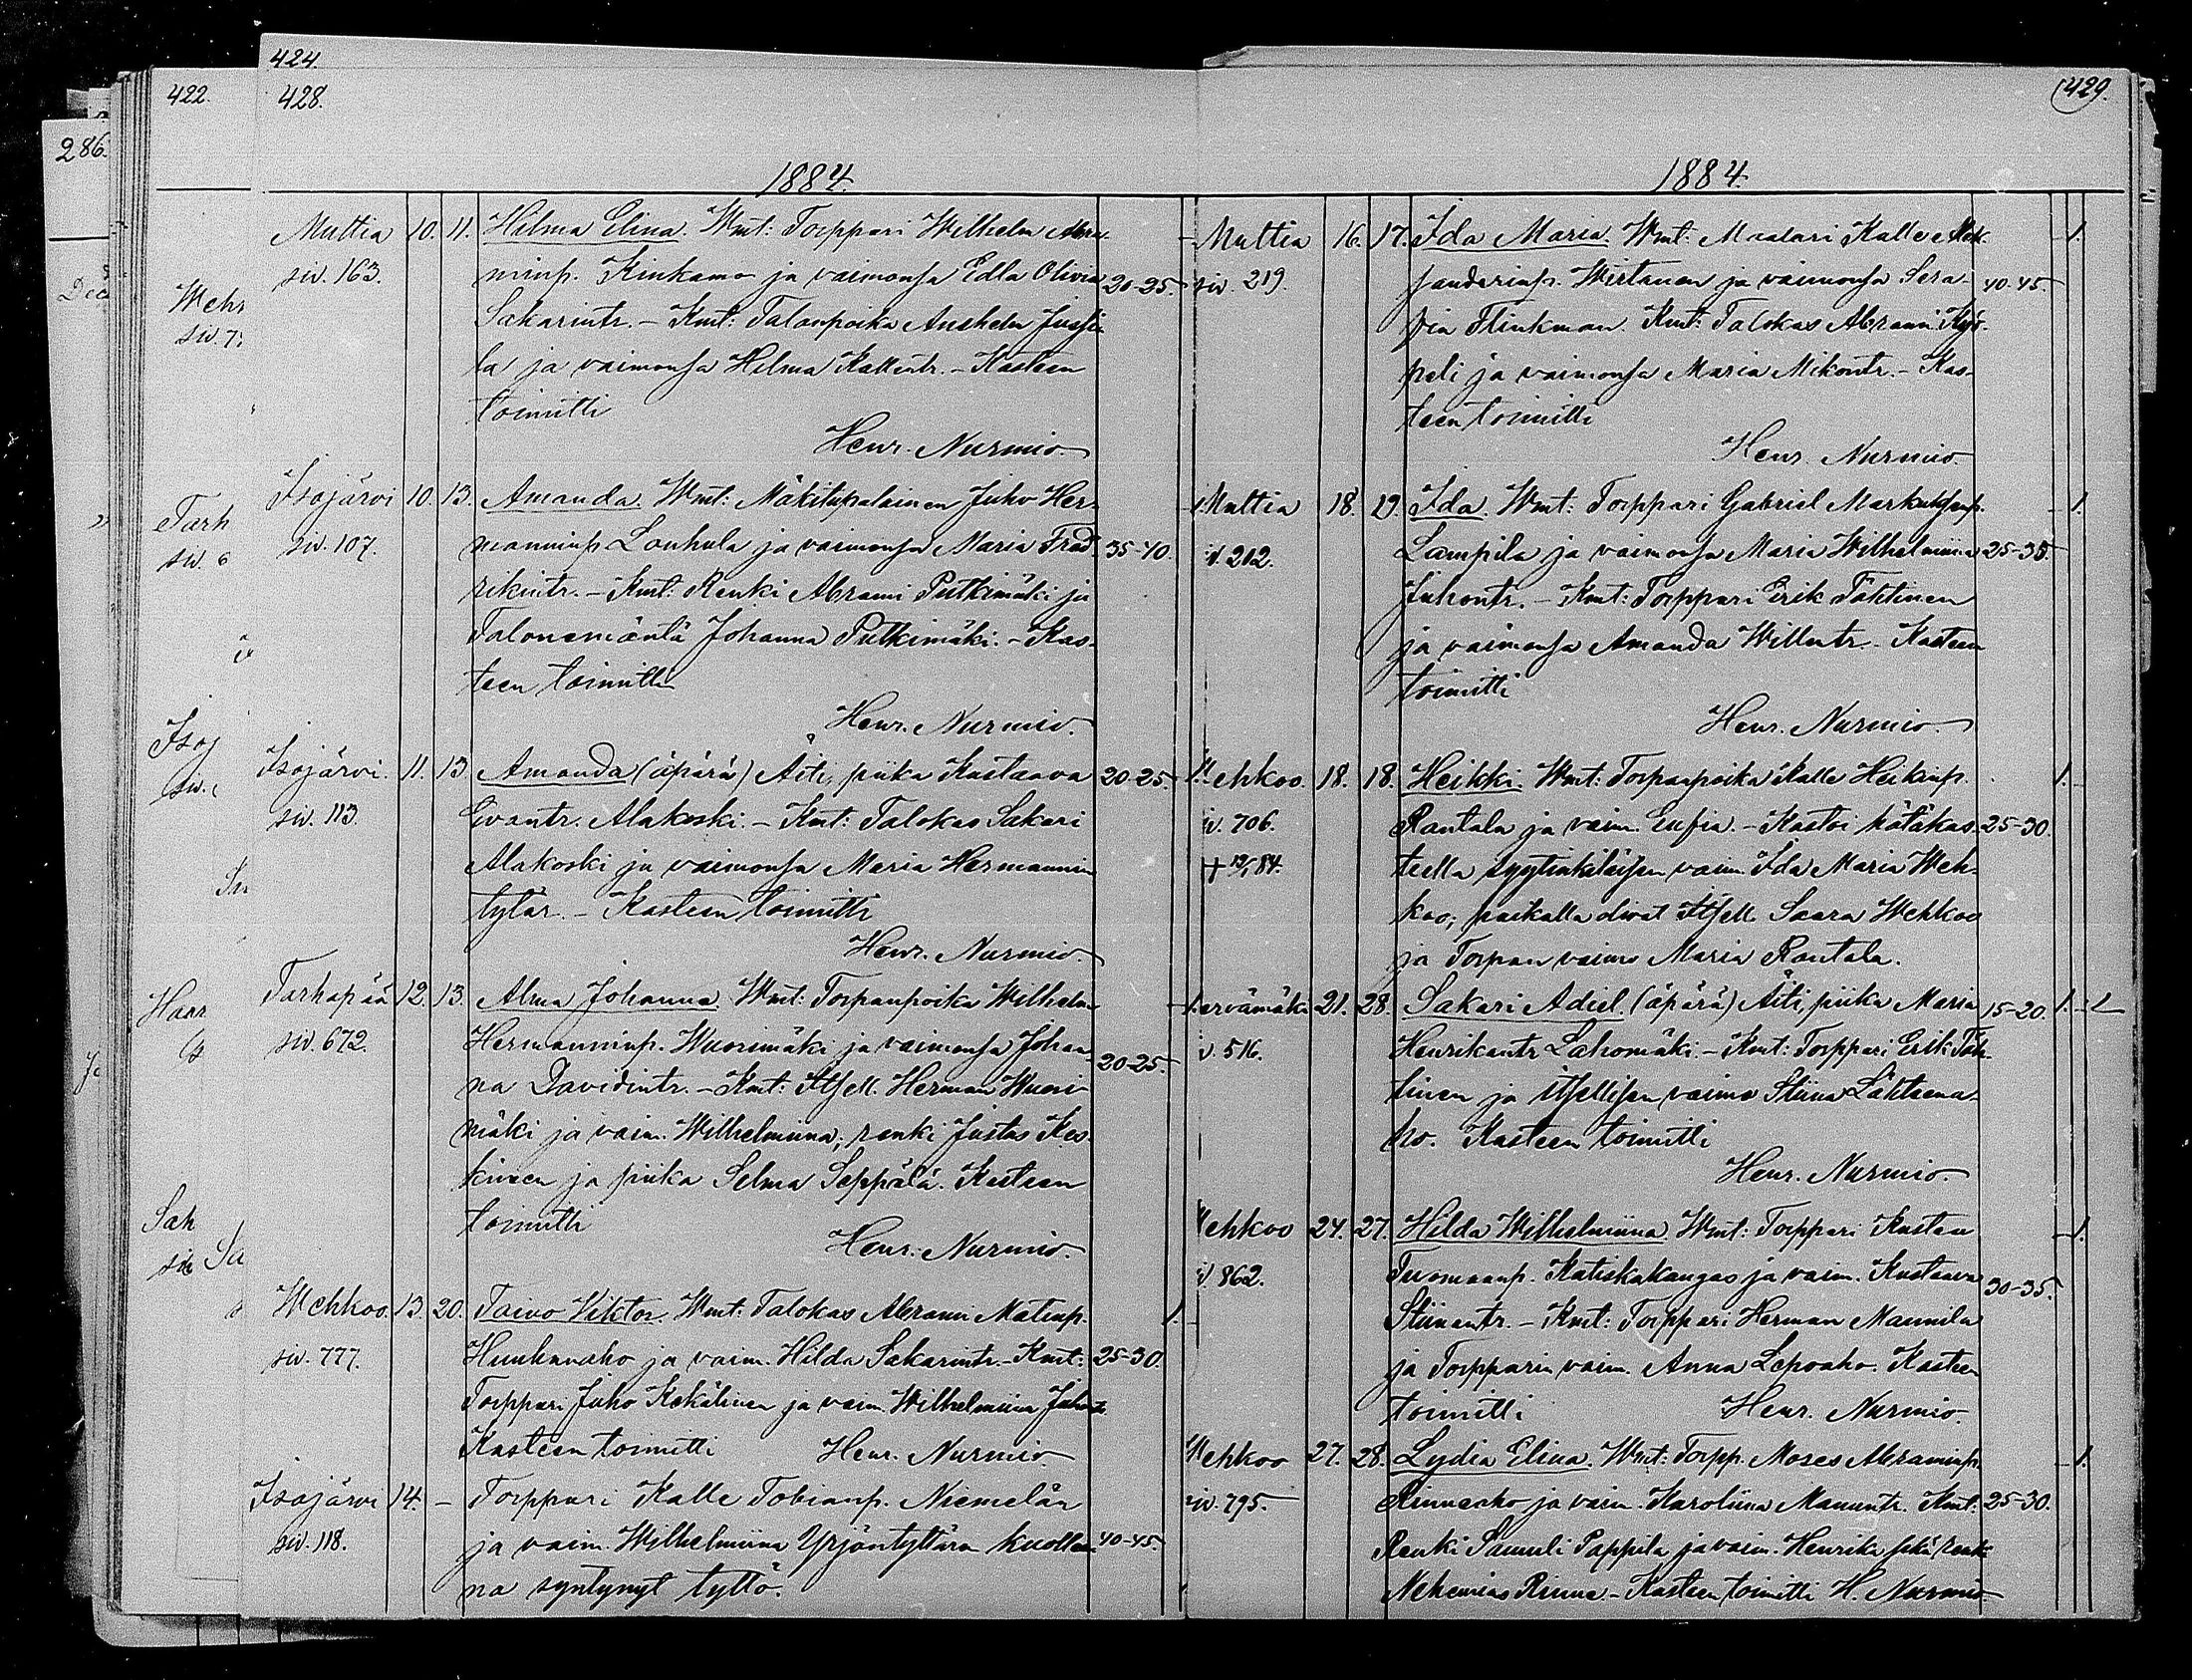 424.
422. 428.
286.
1884.
Multia 10. 11. Hilma Elina. Wmt: Torppari Wilhelm Abra-
siv. 163. minp. Kinkamo ja vaimonsa Edla Olivia 20-25.
Sakarintr. – Kmt: Talonpoika Anshelm Jussi-
la ja vaimonsa Helma Kallentr. – Kasteen
toimitti
Henr. Nurmio.
Isojärvi 10. 13. Amanda. Wmt: Mäkitupalainen Juho Her-
siv. 107. manninp. Louhula ja vaimonsa Maria Fred- 35-40.
rikintr. – Kmt: Renki Abrami Putkimäki ja
Talonemäntä Johanna Putkimäki. – Kas-
teen toimitti
Henr. Nurmio.
Isojärvi. 11. 13 Amanda (äpärä) Äiti, piika Kustaava 20-25.
siv. 113. Eevantr. Alakoski. – Kmt: Talokas Sakari
Alakoski ja vaimonsa Maria Hermannin
tytär. – Kasteen toimitti
Henr. Nurmio.
Tarhapää 12. 13. Alma Johanna Wmt: Torpanpoika Wilhelm
siv. 672. Hermanninp. Wuorimäki ja vaimonsa Johan- 20-25.
na Davidintr. – Kmt: Itsell. Herman Wuori-
mäki ja vaim. Wilhelmiina; renki Justus Kes-
kinen ja piika Selma Seppälä. Kasteen
toimitti
Henr. Nurmio.
Wehkoo. 13. 20. Taivo Viktor. Wmt: Talokas Abrami Matinp. 1.
siv. 777. Huuhanaho ja vaim. Hilda Sakarintr. – Kmt: 25-30.
Torppari Juho Kekälinen ja vaim. Wilhelmiina Juhontr.
Kasteen toimitti Henr. Nurmio
Isojärvi 14. – Torppari Kalle Tobianp. Niemelän
siv. 118. ja vaim. Wilhelmiina Yrjöntyttären kuollee- 40-45.
na syntynyt tyttö.
429.
1884.
Multia 16. 17. Ida Maria. Wmt: Maalari Kalle Alek- 1.
siv. 219. sanderinp. Wirtanen ja vaimonsa Sera- 40-45.
via Flinkman. Kmt: Talokas Abrami Köp-
peli ja vaimonsa Maria Mikontr. – Kas-
teen toimitti
Henr. Nurmio.
Multia 18. 19. Ida. Wmt: Torppari Gabriel Markuksenp. 1.
212. Lampila ja vaimonsa Maria Wilhelmiina 25-35.
Juhontr. – Kmt: Torppari Erik Tähtinen
ja vaimonsa Amanda Willentr. – Kasteen
toimitti
Henr. Nurmio.
Wehkoo. 18. 18. Heikki. Wmt: Torpanpoika Kalle Heikinp. 1.
706. Rantala ja vaim. Eufia. – Kastoi hätäkas- 25-30.
teella syytinkiläisen vaim. Ida Maria Weh-
koo; paikalla olivat Itsell. Saara Wehkoo
ja Torpan vaimo Maria Rantala.
ervämäki 21. 28. Sakari Adiel. (äpärä) Äiti, piika Maria 15-20. 1.
516. Henrikantr Lahomäki – Kmt: Torppari Erik Täh-
tinen ja itsellisen vaimo Stiina Lähteena-
ho. Kasteen toimitti
Henr. Nurmio.
Wehkoo 24. 27. Hilda Wilhelmiina Wmt: Torppari Kustaa 1.
862. Tuomaanp. Katiskakangas ja vaim. Kustaava 30-35.
Stiinantr. – Kmt: Torppari Herman Mannila
ja Torpparin vaim. Anna Lepoaho. Kasteen
toimitti Henr. Nurmio.
Wehkoo 27. 28. Lydia Elina. Wmt: Torpp. Moses Abraminp. 1.
siv. 795. Rinneaho ja vaim. Karoliina Mauuntr. Kmt: 25-30.
Renki Samuli Pappila ja vaim. Henrika sekä renki
Nehemias Rinne. – Kasteen toimitti H. Nurmio